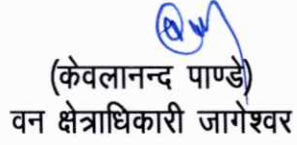 (केवलानन्द पाण्डे)
वन क्षेत्राधिकारी जागेश्वर